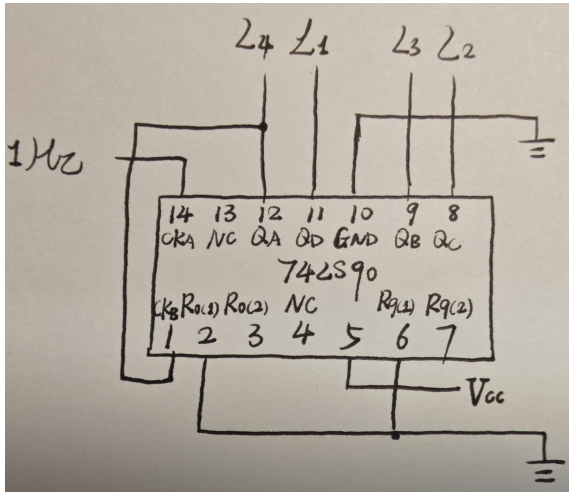 L4 L1 L3 L2
1Hz
14 13 12 11 10 9 8
CKA NC QA QD GND QB QC
74LS90
CKB R0(1) R0(2) NC R9(1) R9(2)
1 2 3 4 5 6 7
Vcc